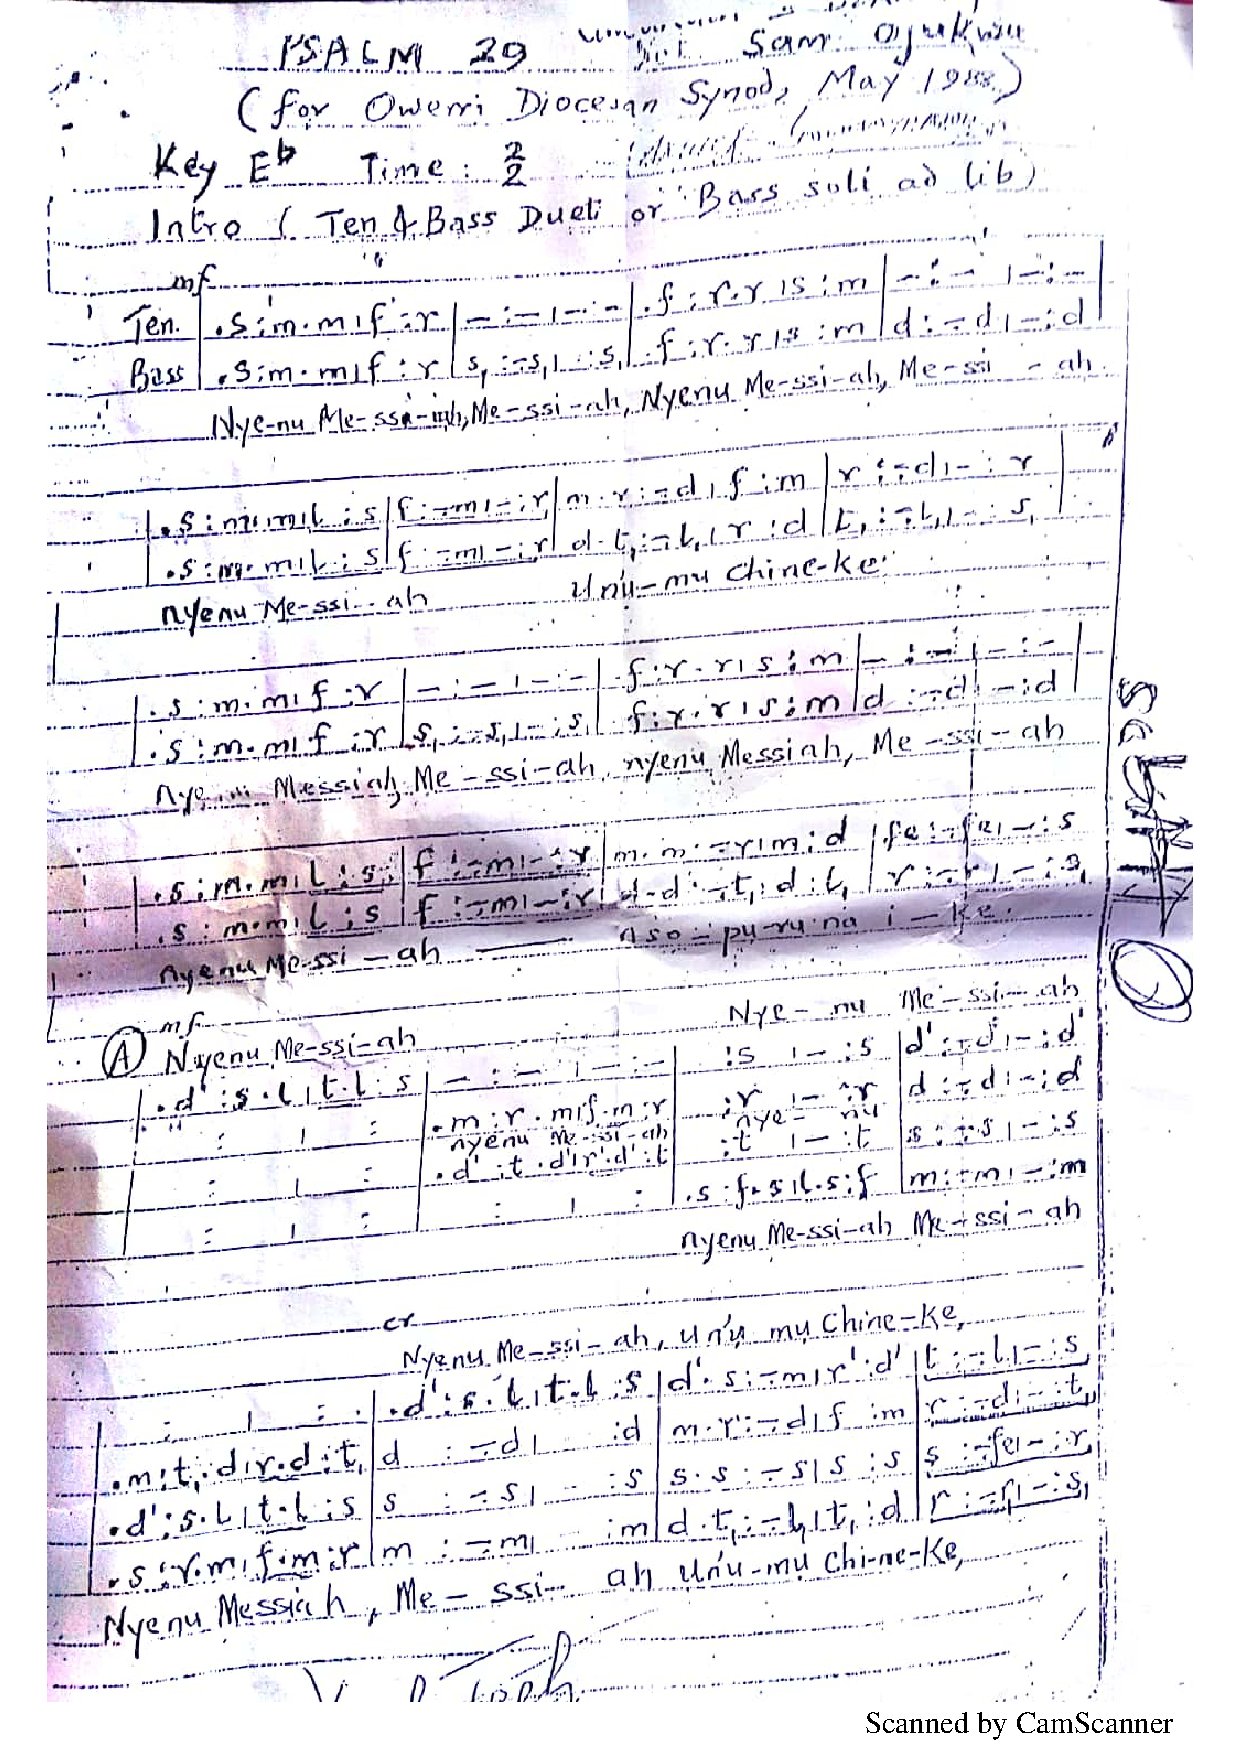 PSALM 29
Sam Ojukwu
(for Owerri Diocesan Synod, May 1988)
Key E♭ Time: 2/2
Intro ( Ten & Bass Duet or Bass soli ad lib)
mf
Ten. | .s:m.m|f:r | -:-|-:- | .f:r.r|s:m | -:-|-:- |
Bass | .s:m.m|f:r | s,:-s,|-:s, | .f:r.r|s:m | d:-d|-:d |
Nye-nu Me-ssi-ah, Me-ssi-ah, Nyenu Me-ssi-ah, Me-ssi-ah
| .s:m.m|l:s | f:-m|-:r | m.r:-d|f:m | r:-d|-:r |
| .s:m.m|l:s | f:-m|-:r | d.t,:-l,|r:d | t,:-l,|-:s, |
nyenu Me-ssi-ah Un'u-mu Chine-Ke
| .s:m.m|f:r | -:-|-:- | f:r.r|s:m | -:-|-:- |
| .s:m.m|f:r | s,:-s,|-:s, | f:r.r|s:m | d:-d|-:d |
Messiah, Me-ssi-ah, nyenu Messiah, Me-ssi-ah
| .s:m.m|l:s | f:-m|-:r | m.m:-r|m:d | fe:-fe|-:s |
| .s:m.m|l:s | f:-m|-:r | d.d:-t,|d:t, | r:-r|-:s, |
nyenu Me-ssi-ah Aso-pu-ru-na i-Ke.
Nye-nu Me-ssi-ah
mf
(A) Nyenu Me-ssi-ah
| .d':s.l|t.l:s | -:-|-:- | :s|-:s | d':-d'|-:d' |
| : | : | .m:r.m|f.m:r | :r|-:r | d:-d|-:d |
nyenu Me-ssi-ah nye-nu
| : | : | .d':t.d'|r'.d':t | :t|-:t | s:-s|-:s |
| : | : | : | : | .s:f.s|l.s:f | m:-m|-:m |
nyenu Me-ssi-ah Me-ssi-ah
cr
Nyenu Me-ssi-ah, Un'u mu Chine-Ke,
| : | : | .d':s.l|t.l:s | d'.s:-m|r':d' | t:-l|-:s |
| .m:t,.d|r.d:t, | d:-d|-:d | m.r:-d|f:m | r:-d|-:t, |
| .d':s.l|t.l:s | s:-s|-:s | s.s:-s|s:s | s:-fe|-:r |
| .s:r.m|f.m:r | m:-m|-:m | d.t,:-l,|t,:d | r:-r|-:s, |
Nyenu Messiah, Me-ssi-ah Un'u-mu Chi-ne-Ke,
Scanned by CamScanner